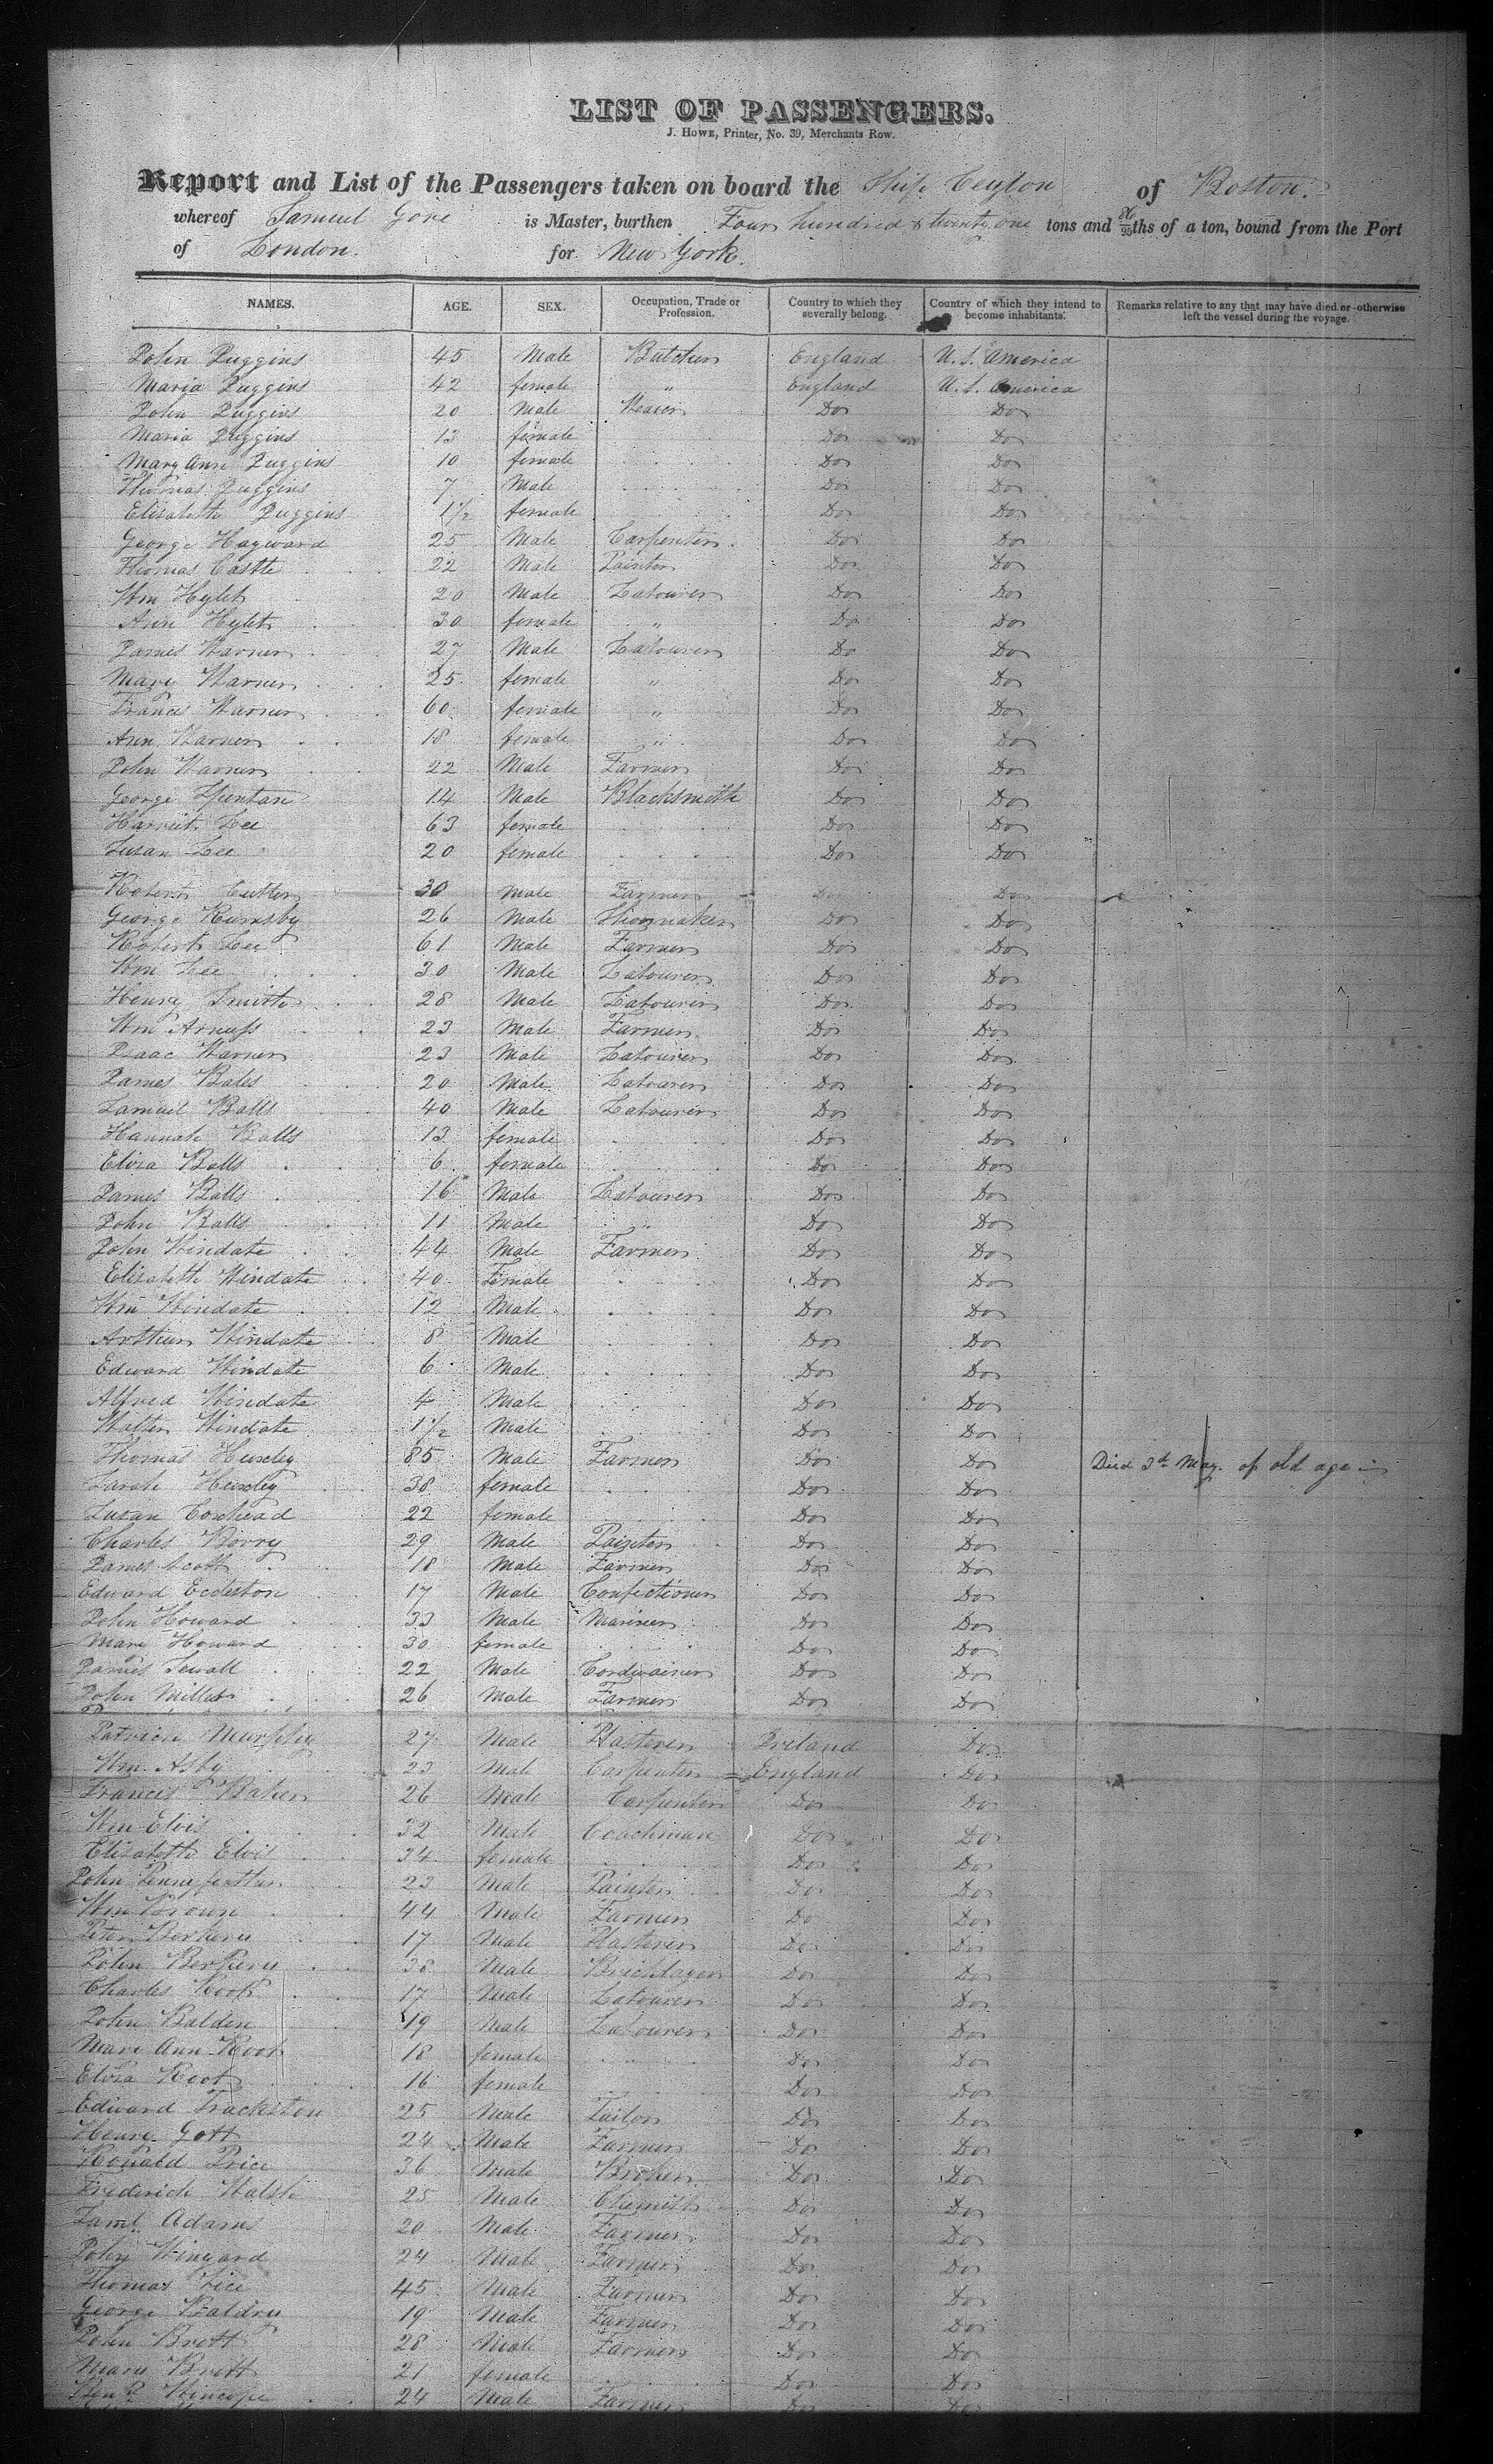 LIST OF PASSENGERS.
J. HOWE, Printer, No. 39, Merchants Row.
Report and List of the Passengers taken on board the Ship Ceylon of Boston.
whereof Samuel Gore is Master, burthen Four hundred & twenty one tons and 86/95ths of a ton, bound from the Port
of London. for New York.
NAMES. AGE. SEX. Occupation, Trade or Profession. Country to which they severally belong. Country of which they intend to become inhabitants. Remarks relative to any that may have died or otherwise left the vessel during the voyage.
John Juggins 45 Male Butcher England U.S. America
Maria Juggins 42 female " England U.S. America
John Juggins 20 Male Weaver Do Do
Maria Juggins 13 female Do Do
Mary Ann Juggins 10 female Do Do
Thomas Juggins 7 Male Do Do
Elisabeth Juggins 1½ female Do Do
George Hayward 25 Male Carpenter Do Do
Thomas Castle 22 Male Painter Do Do
Wm Hylet 20 Male Labourer Do Do
Ann Hylet 30 female " Do Do
James Warner 27 Male Labourer Do Do
Mary Warner 25 female " Do Do
Francis Warner 60 female " Do Do
Ann Warner 18 female " Do Do
John Warner 22 Male Farmer Do Do
George 14 Male Blacksmith Do Do
Harriet Lee 63 female Do Do
Susan Lee 20 female Do Do
Robert Cutter 30 Male Farmer Do Do
George Rumsby 26 Male Shoemaker Do Do
Robert Lee 61 Male Farmer Do Do
Wm Lee 30 Male Labourer Do Do
Henry Smith 28 Male Labourer Do Do
Wm 23 Male Farmer Do Do
Isaac Warner 23 Male Labourer Do Do
James Bales 20 Male Labourer Do Do
Samuel Balls 40 Male Labourer Do Do
Hannah Balls 13 female Do Do
Eliza Balls 6 female Do Do
James Balls 16 Male Labourer Do Do
John Balls 11 Male " Do Do
John Windate 44 Male Farmer Do Do
Elisabeth Windate 40 Female Do Do
Wm Windate 12 Male Do Do
Arthur Windate 8 Male Do Do
Edward Windate 6 Male Do Do
Alfred Windate 4 Male Do Do
Walter Windate 1½ Male Do Do
Thomas Huxley 85 Male Farmer Do Do Died 3d May. of old age
Sarah Huxley 38 female Do Do
Susan Coxhead 22 female Do Do
Charles Borry 29 Male Painter Do Do
James Scott 18 Male Farmer Do Do
Edward Eccleston 17 Male Confectioner Do Do
John Howard 33 Male Mariner Do Do
Mary Howard 30 female Do Do
James Sewall 22 Male Cordwainer Do Do
John Miller 26 Male Farmer Do Do
Patrick Murphy 27 Male Plasterer Ireland Do
Wm Asby 23 Male Carpenter England Do
Francis Baker 26 Male Carpenter Do Do
Wm Elvis 32 Male Coachman Do Do
Elisabeth Elvis 34 female Do Do
John Pennyfather 23 Male Painter Do Do
Wm Brown 44 Male Farmer Do Do
Peter 17 Male Plasterer Do Do
John 38 Male Bricklayer Do Do
Charles Root 17 Male Labourer Do Do
John Balden 19 Male Labourer Do Do
Mary Ann Root 18 female Do Do
Eliza Root 16 female Do Do
Edward Frackston 25 Male Tailor Do Do
Henry Gott 24 Male Farmer Do Do
Ronald Price 36 Male Broker Do Do
Frederick Walsh 25 Male Chemist Do Do
Saml Adams 20 Male Farmer Do Do
John Wingard 24 Male Farmer Do Do
Thomas 45 Male Farmer Do Do
George Baldry 19 Male Farmer Do Do
John Brett 28 Male Farmer Do Do
Mary Brett 21 female Do Do
24 Male Farmer Do Do